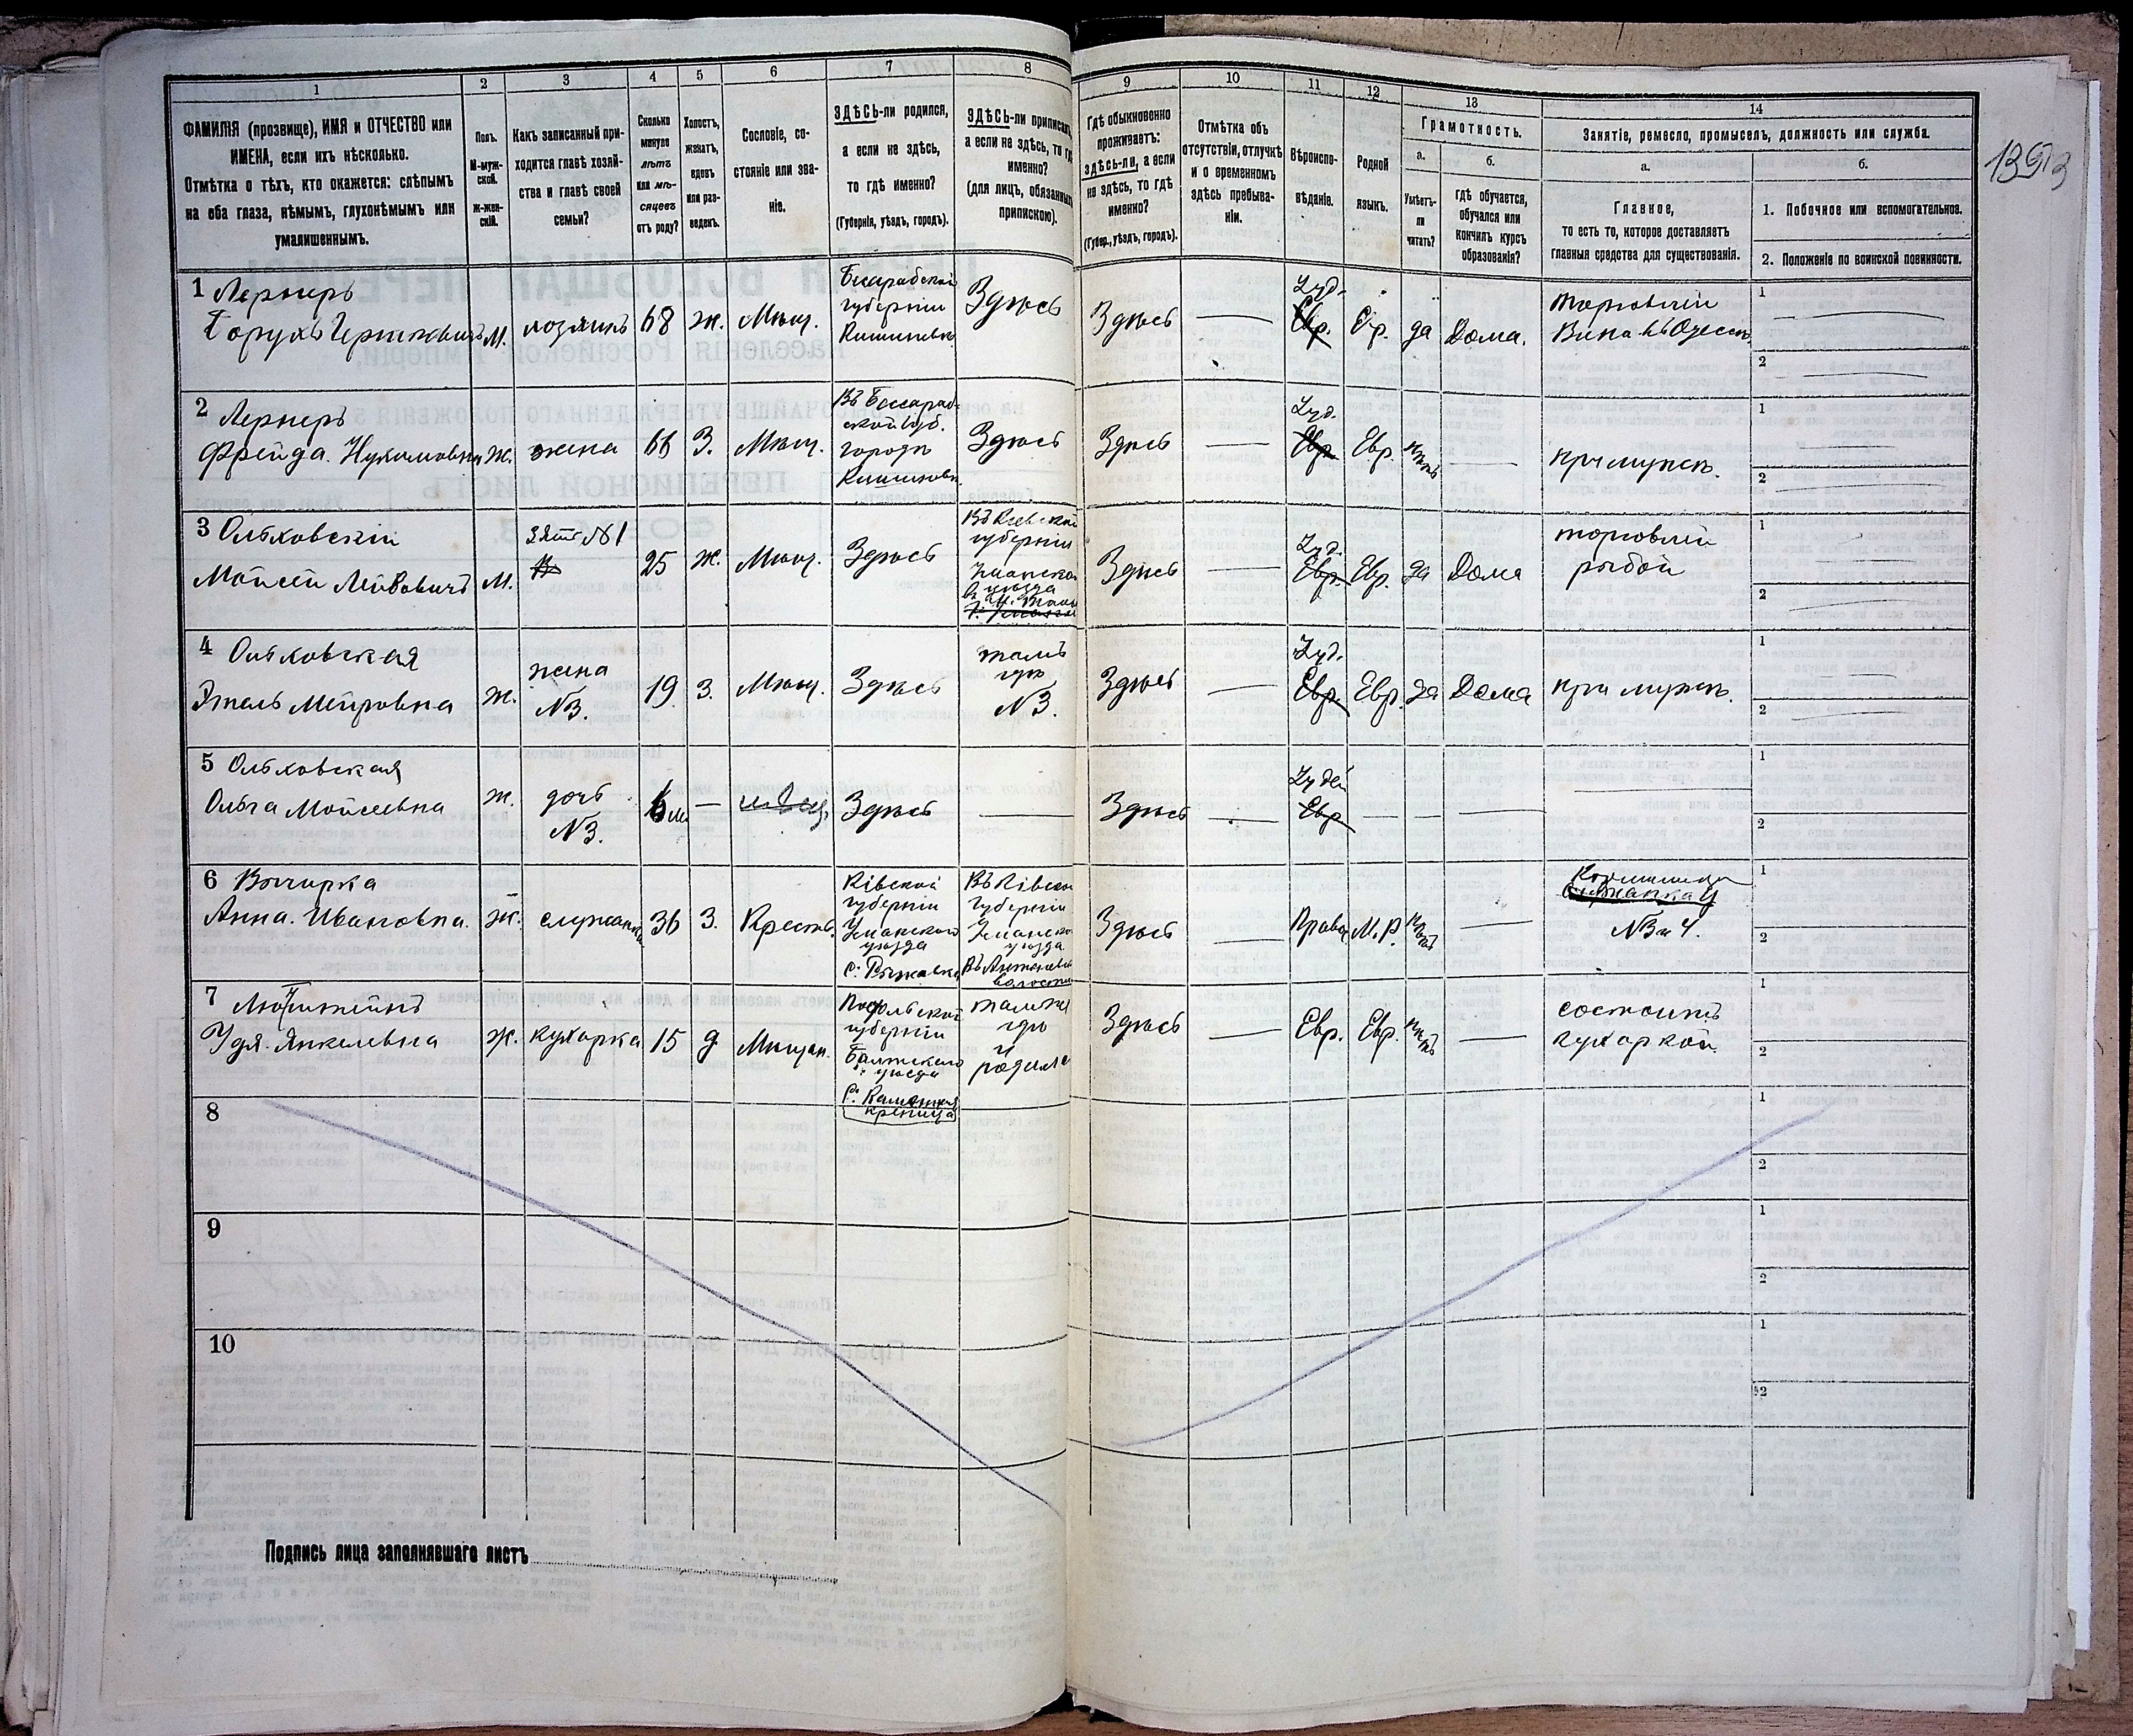 1
2
3
4
5
6
7
8
9
10
11
12
13
14
ФАМИЛІЯ (прозвище), ИМЯ и ОТЧЕСТВО или
ИМЕНА, если ихъ нѣсколько.
Отмѣтка о тѣхъ, кто окажется: слѣпымъ
на оба глаза, нѣмымъ, глухонѣмымъ или
умалишеннымъ.
Полъ.
М-муж-
ской.
Ж-жен-
скій.
Какъ записанный при-
ходится главѣ хозяй-
ства и главѣ своей
семьи?
Сколько
минуло
лѣтъ
или мѣ-
сяцевъ
отъ роду?
Холостъ,
женатъ,
вдовъ
или раз-
веденъ.
Сословіе, со-
стояніе или зва-
ніе.
ЗДѢСЬ-ли родился,
а если не здѣсь,
то гдѣ именно?
(Губернія, уѣздъ, городъ).
ЗДѢСЬ-ли приписанъ,
а если не здѣсь, то гдѣ
именно?
(для лицъ, обязанныхъ
припискою).
Гдѣ обыкновенно
проживаетъ:
здѣсь-ли, а если
не здѣсь, то гдѣ
именно?
(Губер., уѣздъ, городъ).
Отмѣтка объ
отсутствіи, отлучкѣ
и о временномъ
здѣсь пребыва-
ніи.
Вѣроиспо-
вѣданіе.
Родной
языкъ.
Грамотность.
а.
Умѣетъ-
ли
читать?
б.
Гдѣ обучается,
обучался или
кончилъ курсъ
образованія?
Занятіе, ремесло, промыселъ, должность или служба.
а.
Главное,
то есть то, которое доставляетъ
главныя средства для существованія.
б.
1. Побочное или вспомогательное.
2. Положеніе по воинской повинности.
1 Лернеръ
Борухъ Гершковичъ
М.
хозяинъ
68
ж.
Мѣщ.
Бессарабской
губерніи
Кишиневъ
Здѣсь
Здѣсь
Іуд.
Евр.
Евр.
да
Дома.
торговлей
Вина въ Одессѣ
1
2
2 Лернеръ
Фрейда Нухимовна
Ж.
жена
66
З.
Мѣщ.
Въ Бессараб-
ской губ.
городъ
Кишиневъ
Здѣсь
Здѣсь
Іуд.
Евр.
Евр.
нѣтъ
при мужѣ.
1
2
3 Ольховскій
Мойсей Лейбовичъ
М.
зять №1
25
ж.
Мѣщ.
Здѣсь
Въ Кіевской
губерніи
Уманска
уѣзда
Здѣсь
Іуд.
Евр.
Евр.
да
Дома
торговлей
рыбой
1
2
4 Ольховская
Этель Меировна
ж.
жена
№3.
19
з.
Мѣщ.
Здѣсь
тамъ
гдѣ
№3.
Здѣсь
Іуд.
Евр.
Евр.
да
Дома
при мужѣ.
1
2
5 Ольховская
Ольга Мойсеевна
ж.
дочь
№3.
6 м
Здѣсь
Здѣсь
Іудей
Евр.
1
2
6 Вычирка
Анна. Ивановна.
ж.
служанка
36
З.
Крестъ.
Кіевской
губерніи
Уманского
уѣзда
с. Рыжавка
Въ Кіевско
губерніи
Уманско
уѣзда
волости
Здѣсь
Права
М.Р.
нѣтъ
Кормилица
служанка у
№3 и 4.
1
2
7
Удя. Янкелевна
ж.
кухарка
15
д
Мѣщан.
Подольской
губерніи
Балтскаго
уѣзда
С. Каменная
креница
тамже
гдѣ
и
родила
Здѣсь
Евр.
Евр.
нѣтъ
состоитъ
кухаркой.
1
2
8
1
2
9
1
2
10
1
2
Подпись лица заполнявшаго листъ